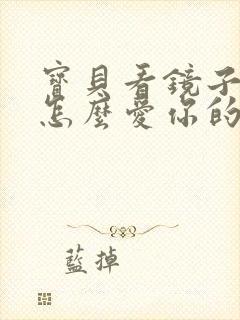 寶貝看鏡子
怎麼愛你的
藍掉